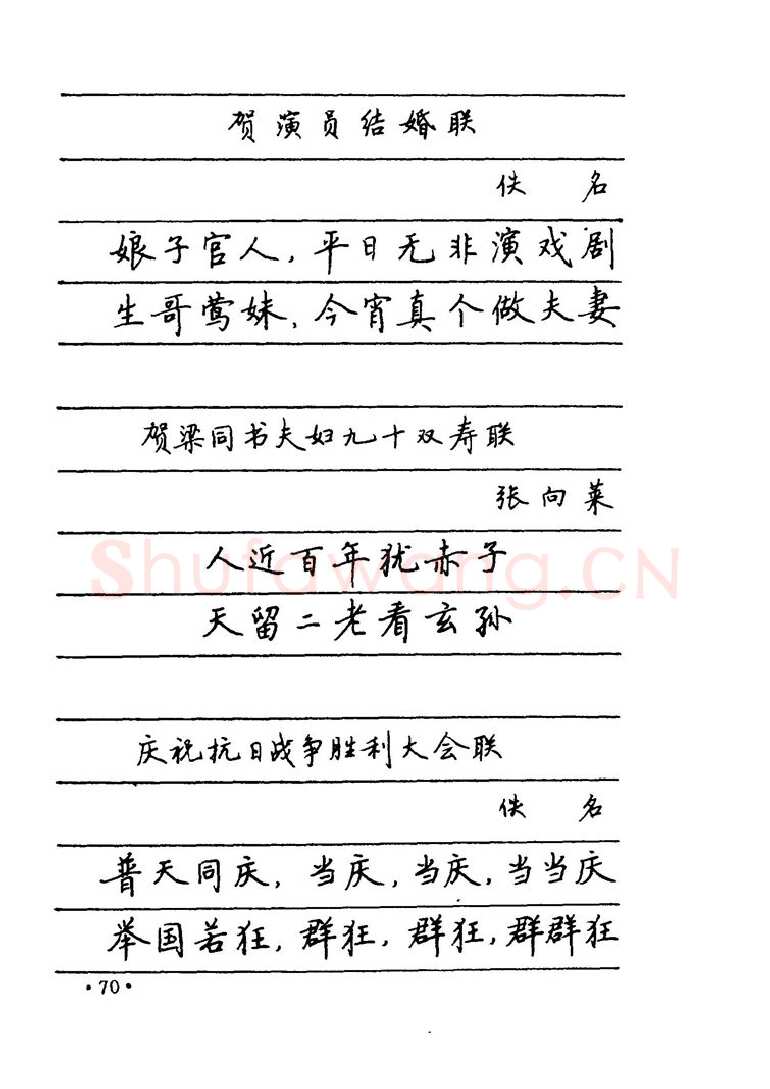 贺演员结婚联
佚 名
娘子官人,平日无非演戏剧
生哥莺妹,今宵真个做夫妻
贺梁同书夫妇九十双寿联
张向莱
人近百年犹赤子
天留二老看玄孙
Shufawang.CN
庆祝抗日战争胜利大会联
佚 名
普天同庆,当庆,当庆,当当庆
举国若狂,群狂,群狂,群群狂
·70·